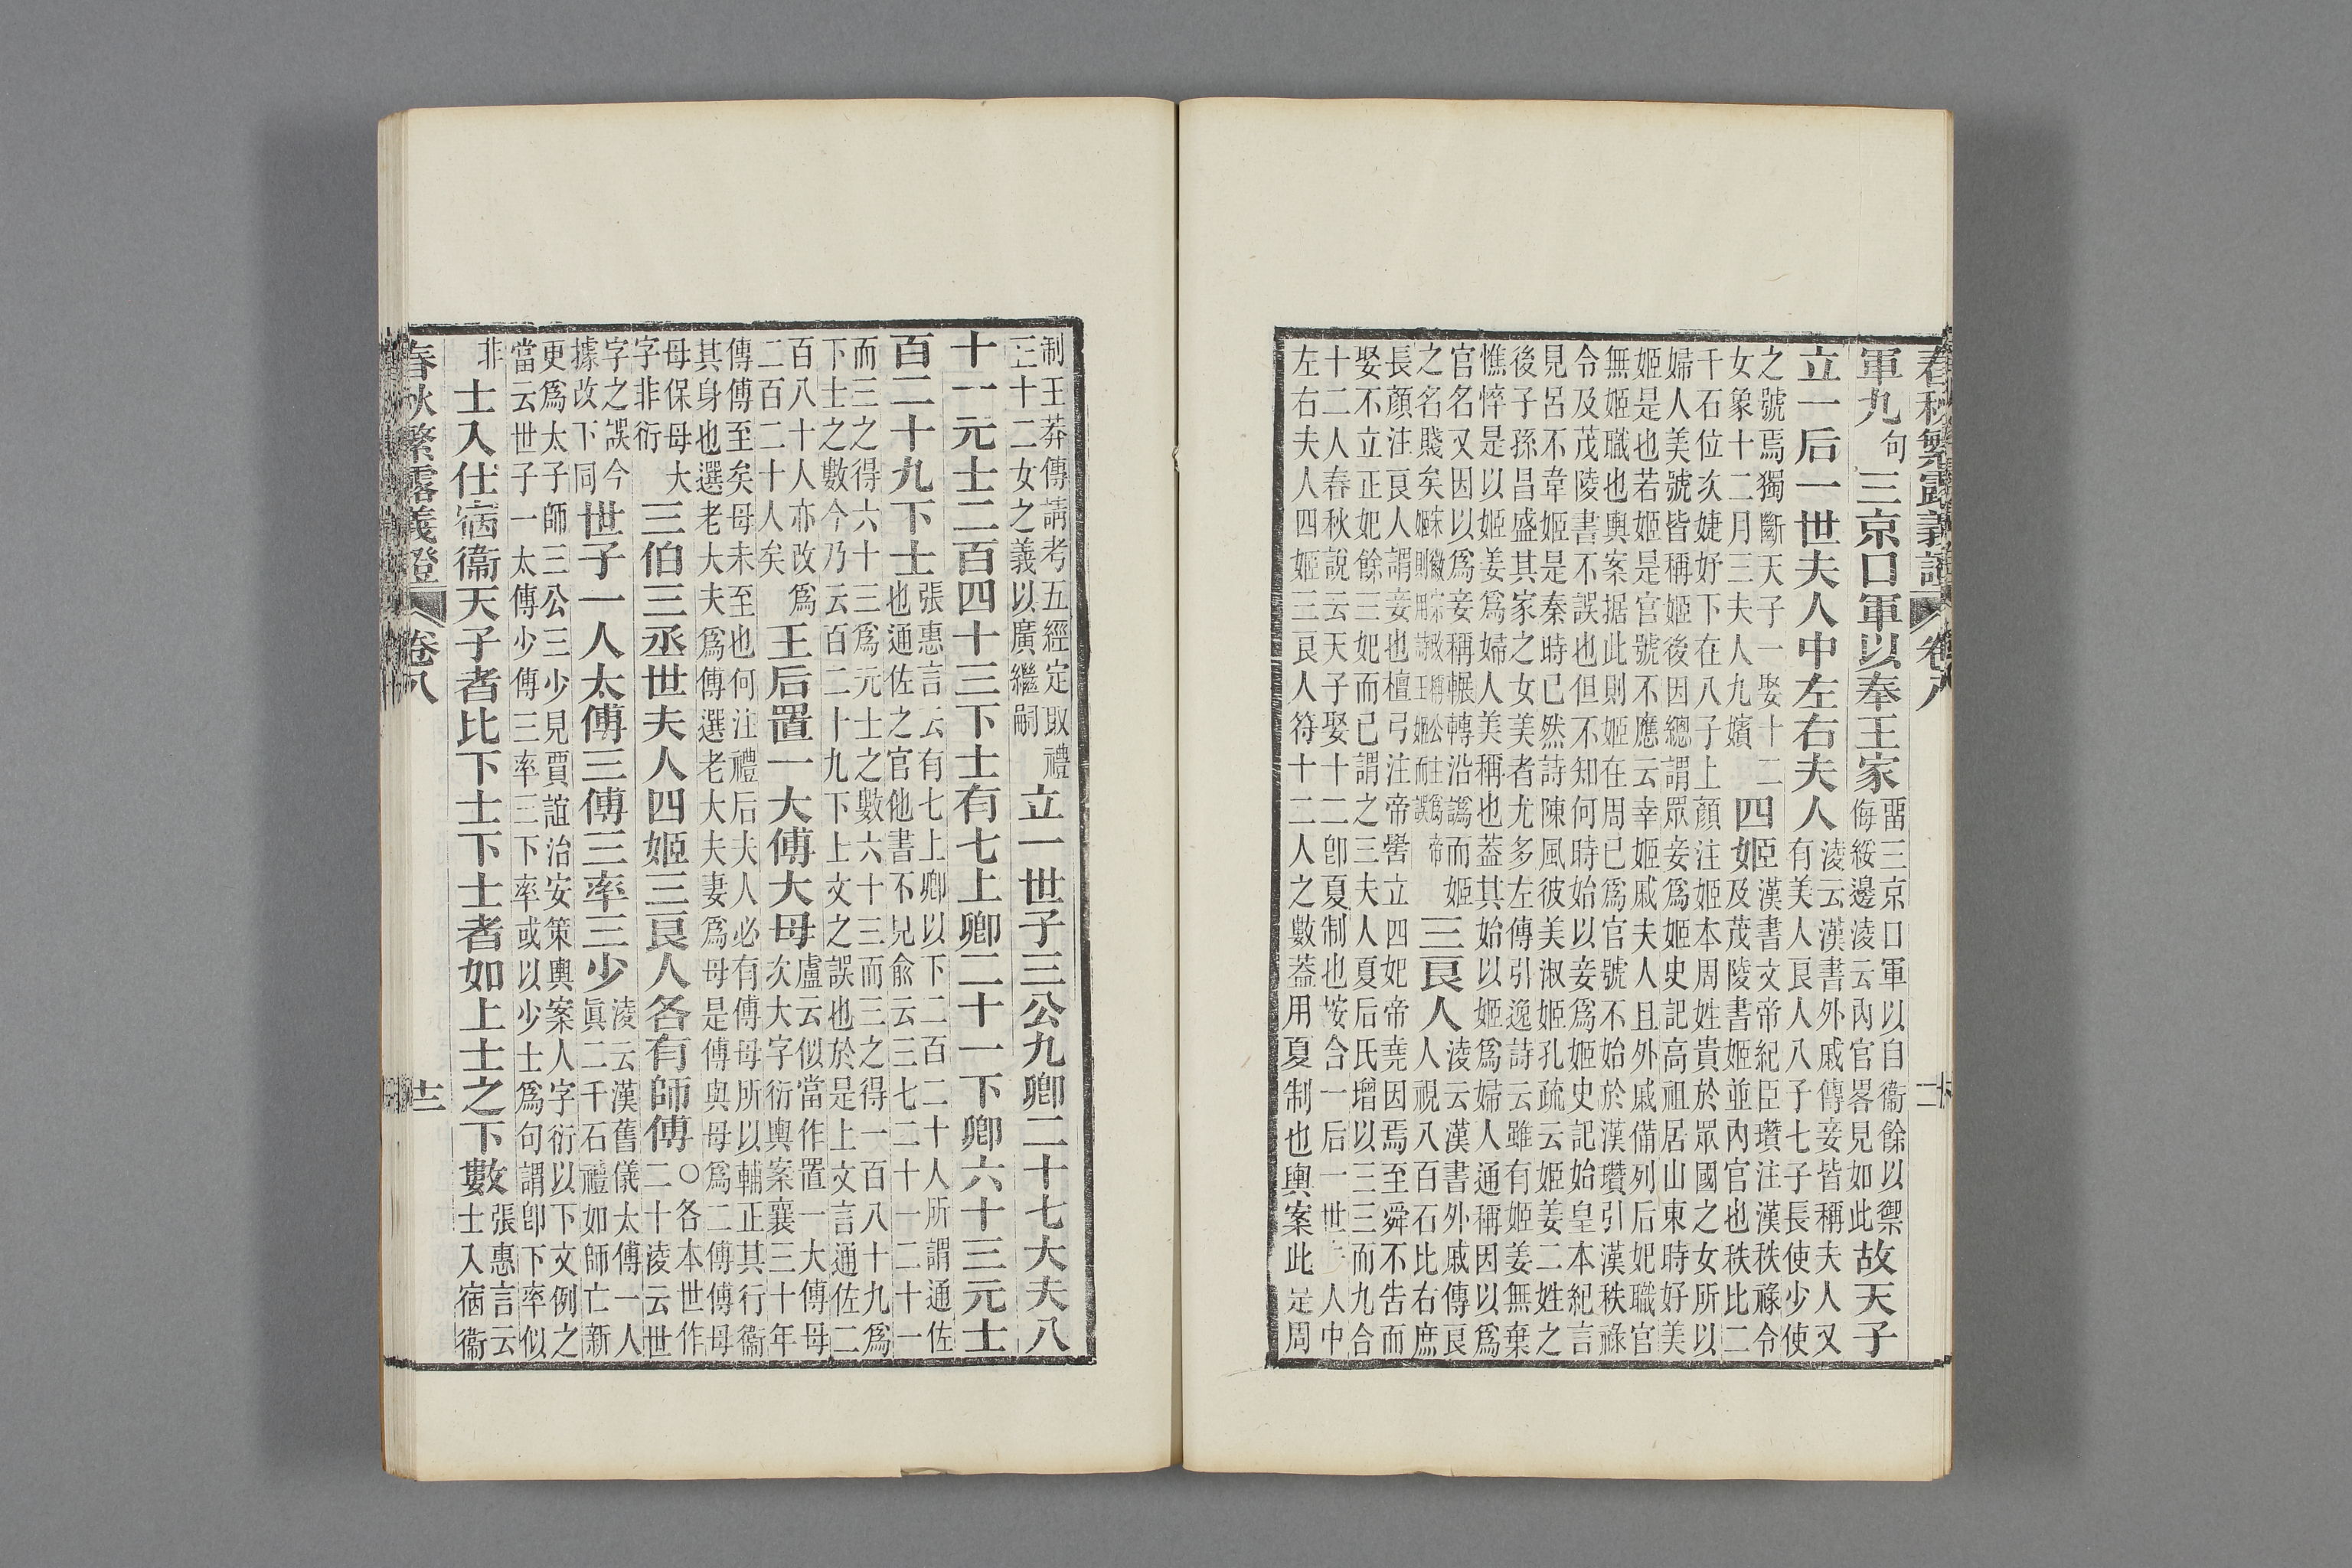 春秋繁露義證 卷八 十二
軍九句三京口軍以奉王家畱三京口軍以自衞餘以禦
侮綏邊淩云內官畧見如此故天子
立一后一世夫人中左右夫人淩云漢書外戚傳妾皆稱夫人又
有美人良人八子七子長使少使
之號焉獨斷天子一娶十二
女象十二月三夫人九嬪四姬漢書文帝紀臣瓚注漢秩祿令
及茂陵書姬並內官也秩比二
千石位次婕妤下在八子上顏注姬本周姓貴於眾國之女所以
婦人美號皆稱姬後因總謂眾妾爲姬史記高祖居山東時好美
姬是也若姬是官號不應云幸姬戚夫人且外戚備列后妃職官
無姬職也輿案据此則姬在周已爲官號不始於漢瓚引漢秩祿
令及茂陵書不誤也但不知何時始以妾爲姬史記始皇本紀言
見呂不韋姬是秦時已然詩陳風彼美淑姬孔疏云姬姜二姓之
後子孫昌盛其家之女美者尤多左傳引逸詩云雖有姬姜無棄
憔悴是以姬姜爲婦人美稱也蓋其始以姬爲婦人通稱因以爲
官名又因以爲妾稱輾轉沿譌而姬
之名賤矣宋徽宗改稱公主爲帝
姬則用詩王姬而誤三良人淩云漢書外戚傳良
人視八百石比右庶
長顏注良人謂妾也檀弓注帝嚳立四妃帝堯因焉至舜不告而
娶不立正妃餘三妃而已謂之三夫人夏后氏增以三三而九合
十二人春秋說云天子娶十二卽夏制也按合一后一世夫人中
左右夫人四姬三良人符十二人之數蓋用夏制也輿案此是周
制王莽傳請考五經定取禮
正十二女之義以廣繼嗣立一世子三公九卿二十七大夫八
十一元士二百四十三下士有七上卿二十一下卿六十三元士
百二十九下士張惠言云有七上卿以下二百二十人所謂通佐
也通佐之官他書不見俞云三七二十一二十一
而三之得六十三爲元士之數六十三而三之得一百八十九爲
下士之數今乃云百二十九下上文之誤也於是上文言通佐二
百八十人亦改爲
二百二十人矣王后置一大傅大母盧云似當作置一大傅母
次大字衍輿案襄三十年
傳傅至矣母未至也何注禮后夫人必有傅母所以輔正其行衞
其身也選老大夫爲傅選老大夫妻爲母是傅與母爲二傅傅母
母保母大
字非衍三伯三丞世夫人四姬三良人各有師傅○各本世作
二十淩云世
字之誤今
據改下同世子一人太傅三傅三率三少淩云漢舊儀太傅一人
眞二千石禮如師亡新
更爲太子師三公三少見賈誼治安策輿案人字衍以下文例之
當云世子一太傅少傅三率三下率或以少士爲句謂卽下率似
非士入仕宿衞天子者比下士下士者如上士之下數張惠言云
士入宿衞
春秋繁露義證 卷八 十二